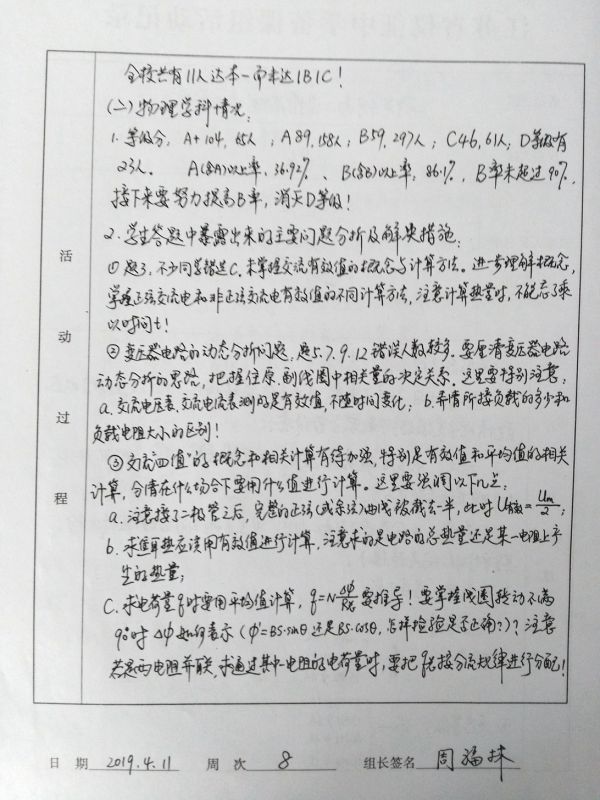 全校共有11人达本一而未达1B1C!
(二)物理学科情况:
1. 等级分: A+ 104, 65人; A 89, 158人; B 59, 297人; C 46, 61人; D等级有
23人. A(含A)以上率, 36.92%、B(含B)以上率, 86.1%, B率未超过90%,
接下来要努力提高B率, 消灭D等级!
2. 学生答题中暴露出来的主要问题分析及解决措施:
① 题3, 不少同学错选C, 未掌握交流有效值的概念与计算方法。进一步理解概念,
掌握正弦交流电和非正弦交流电有效值的不同计算方法, 注意计算热量时, 不能忘了乘
以时间t!
② 变压器电路的动态分析问题, 题5.7.9.12错误人数较多. 要厘清变压器电路
动态分析的思路, 把握住原、副线圈中相关量的决定关系. 这里要特别注意:
a. 交流电压表、交流电流表测的是有效值, 不随时间变化; b. 弄清所接负载的多少和
负载电阻大小的区别!
③ 交流"四值"的概念和相关计算有待加强, 特别是有效值和平均值的相关
计算, 分清在什么场合下要用什么值进行计算。这里要强调以下几点:
a. 注意接了二极管之后, 完整的正弦(或余弦)曲线被截去一半, 此时U有效=Um/2;
b. 求焦耳热应该用有效值进行计算, 注意求的是电路的总热量还是某一电阻上产
生的热量;
C. 求电荷量q时要用平均值计算, q=NΔΦ/R总 要推导! 要掌握线圈转动不满
90°时ΔΦ如何表示(Φ=BS·sinθ还是BS·cosθ, 怎样检验是否正确?)? 注意
若是两电阻并联, 求通过其中一电阻的电荷量时, 要把q总按分流规律进行分配!
活
动
过
程
日 期 2019.4.11 周 次 8 组长签名 周福林